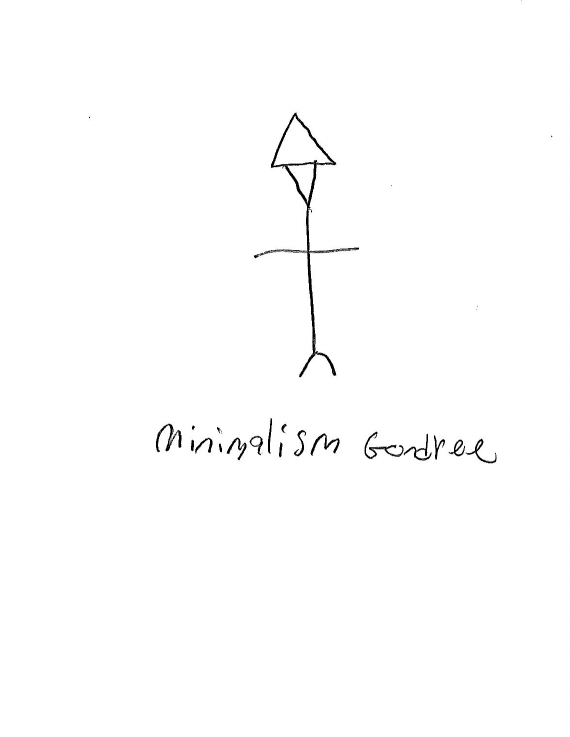 Minimalism Gondree